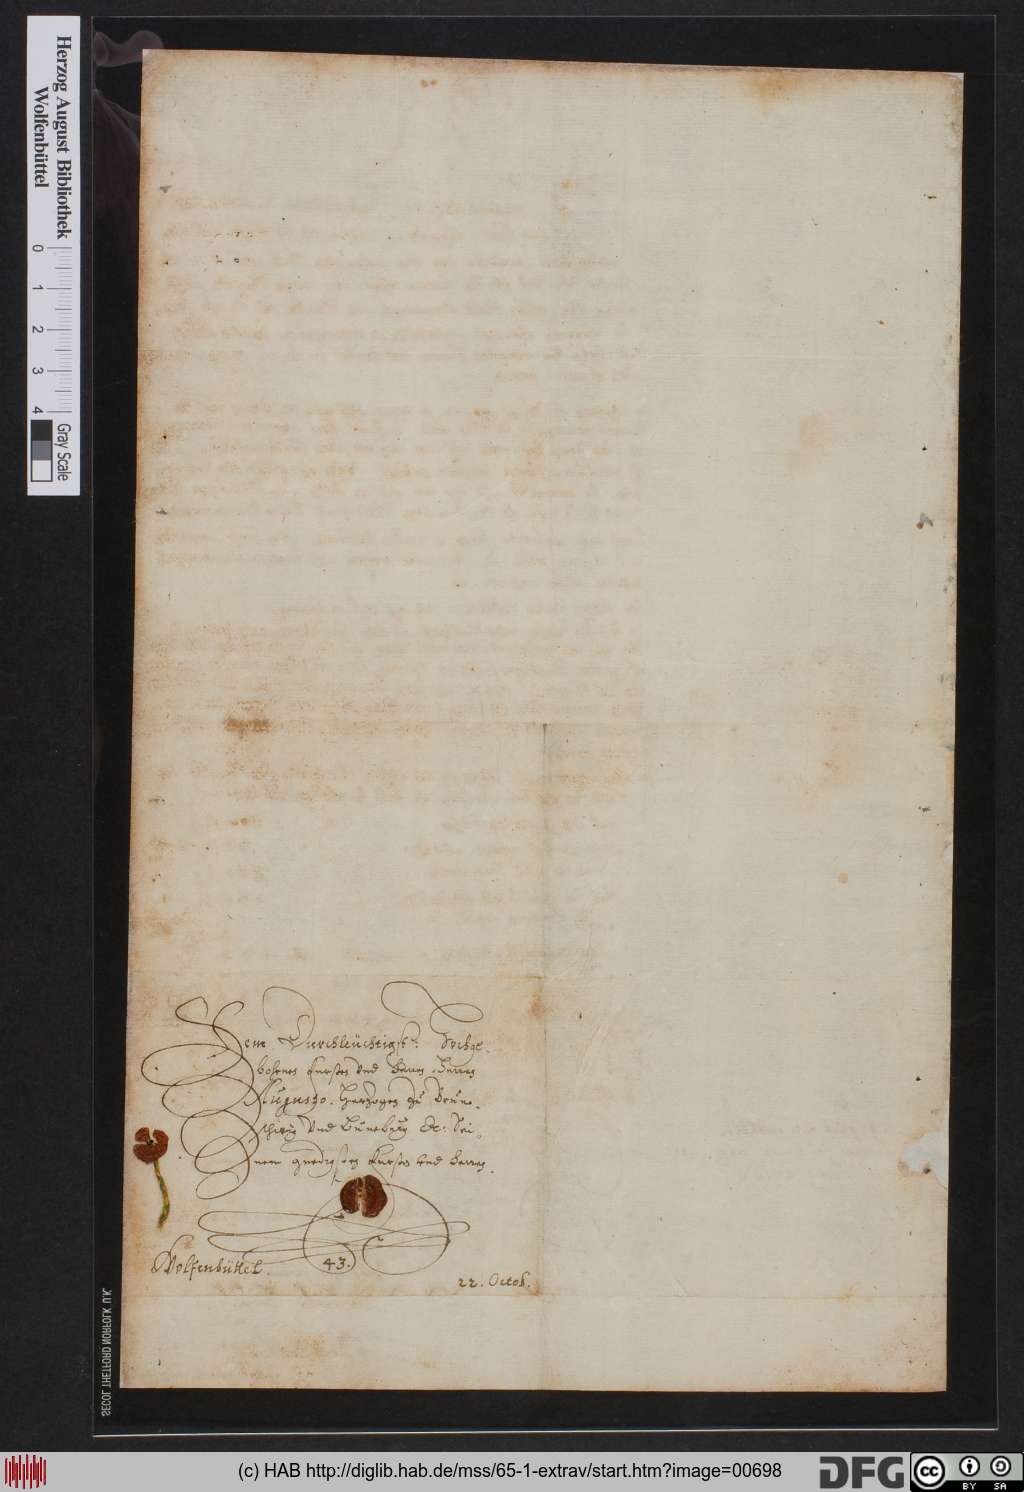 Herzog August Bibliothek
Wolfenbüttel
0 1 2 3 4
Gray Scale
Dem Durchleüchtigst: Hochge-
bohrnen Fursten Vnd Herrn Herrn
Augusto. Hertzogen zů Brůn-
schwig Vnd Lůnebůrg &c: Sei-
nem gnedigsten Fursten vnd Herrn.
Wolfenbüttel.
43.
22. Octob.
(c) HAB http://diglib.hab.de/mss/65-1-extrav/start.htm?image=00698
DFG
cc BY SA